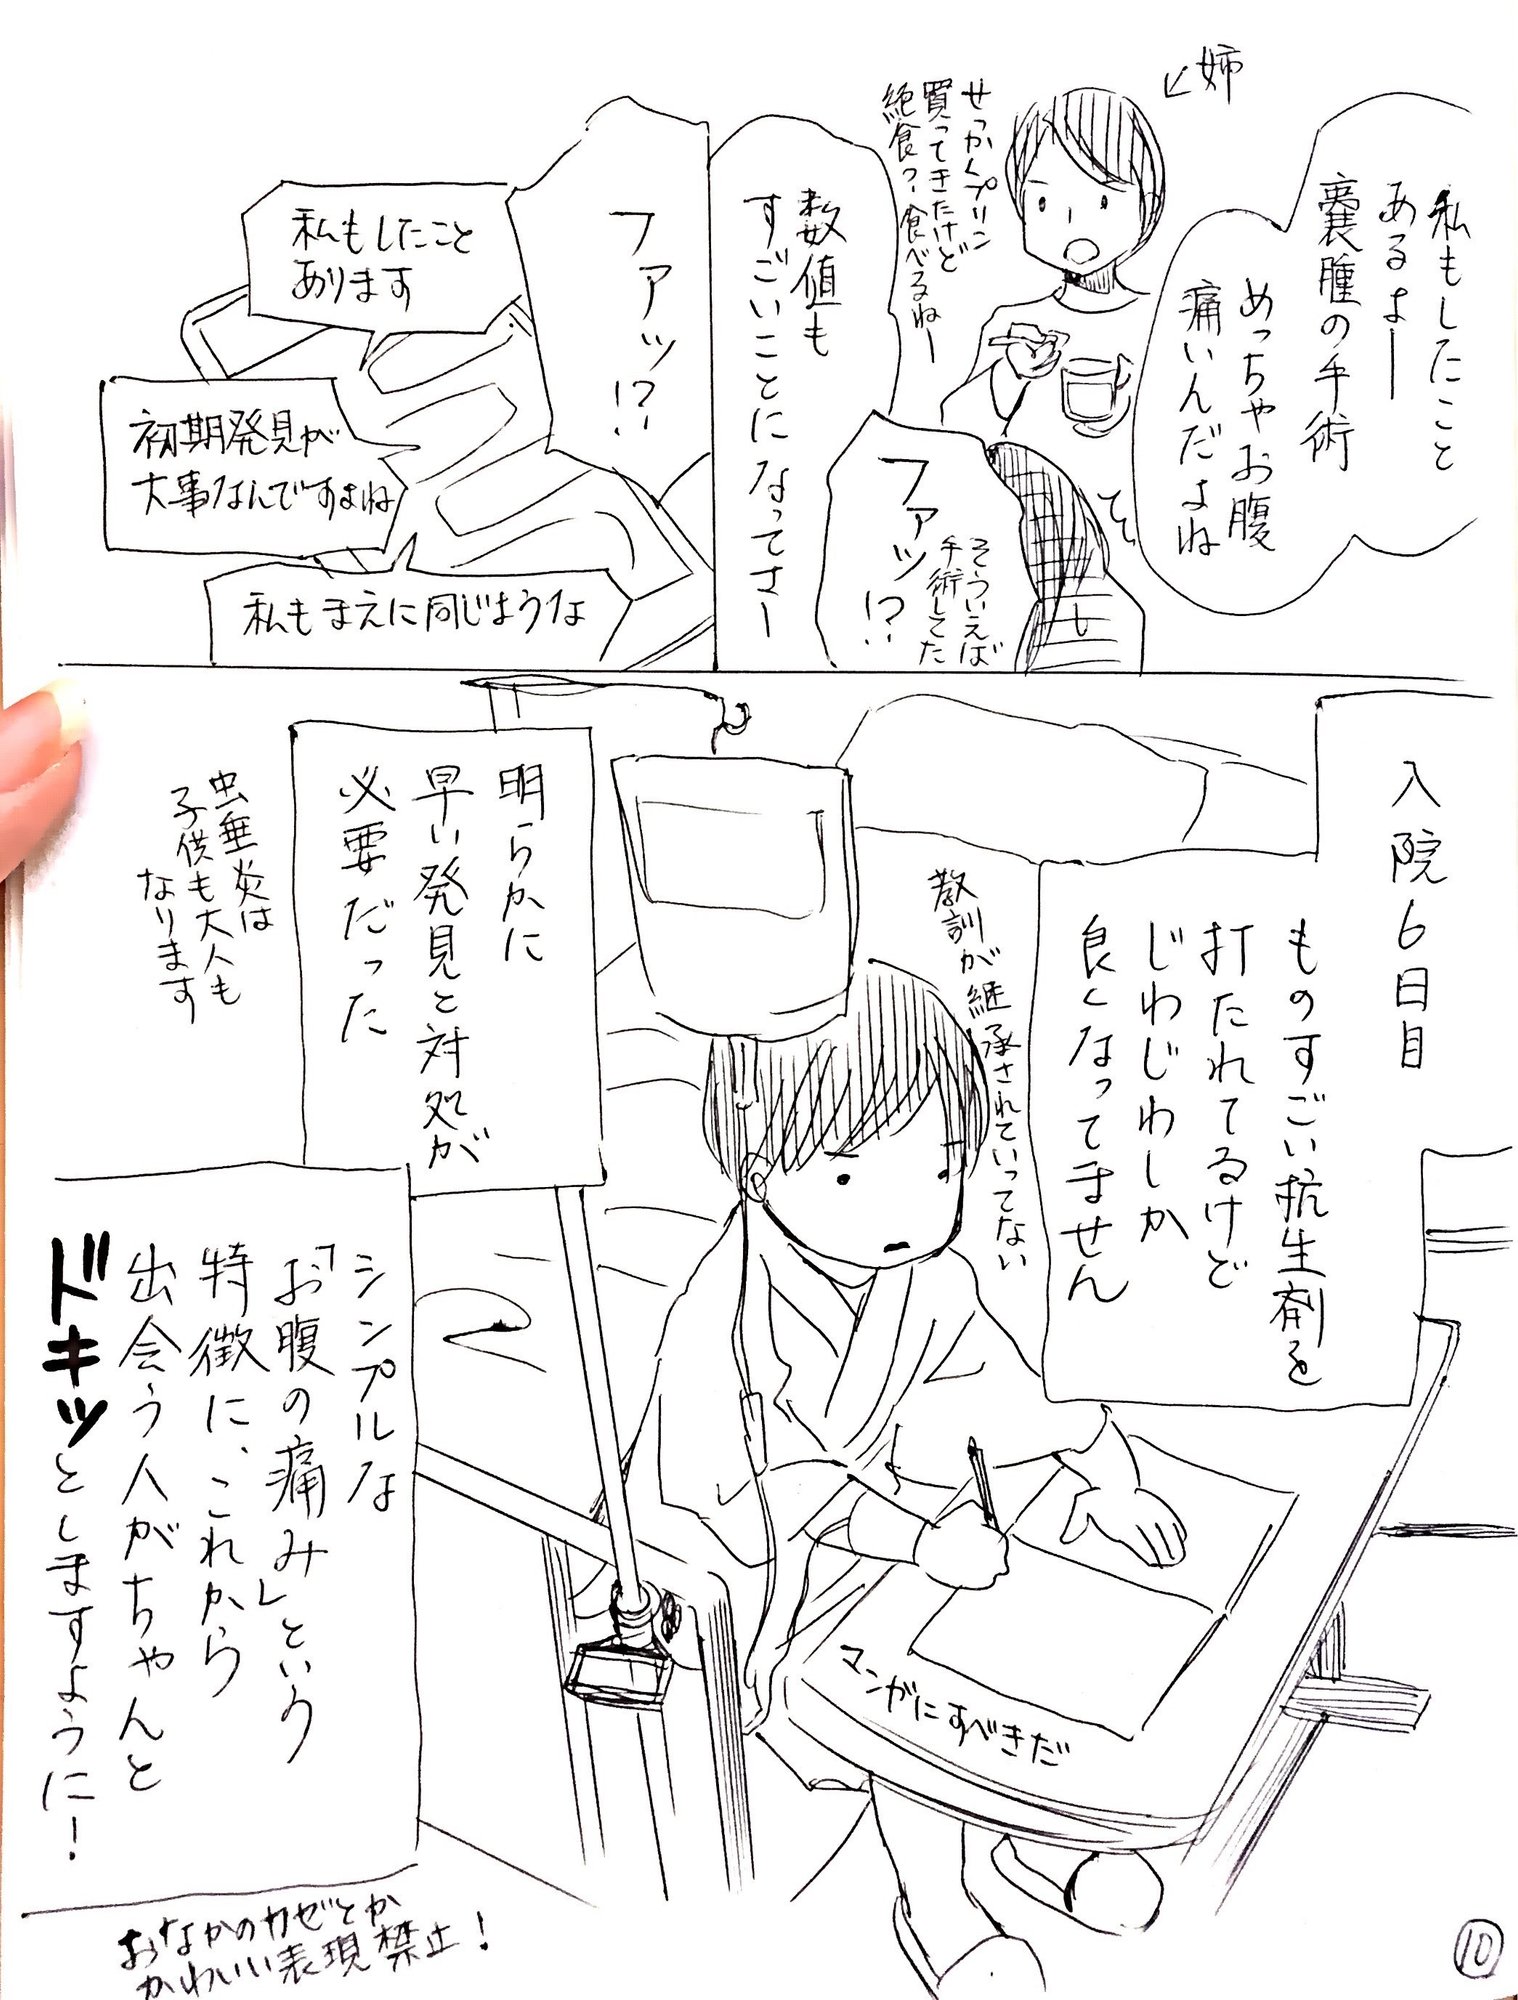 姉
私もしたこと
あるよー
嚢腫の手術
めっちゃお腹
痛いんだよね
せっかくプリン
買ってきたけど
絶食っ？食べるねー
て、
そういえば
手術してた
ファッ!?
数値も
すごいことになってさー
ファッ!?
私もしたこと
あります
初期発見が
大事なんですよね
私もまえに同じような
入院6日目
ものすごい抗生剤を
打たれてるけど
じわじわしか
良くなってません
教訓が継承されていってない
マンガにすべきだ
明らかに
早い発見と対処が
必要だった
虫垂炎は
子供も大人も
なります
シンプルな
「お腹の痛み」という
特徴に、これから
出会う人がちゃんと
ドキッとしますように！
おなかのカゼとか
かわいい表現禁止！
10